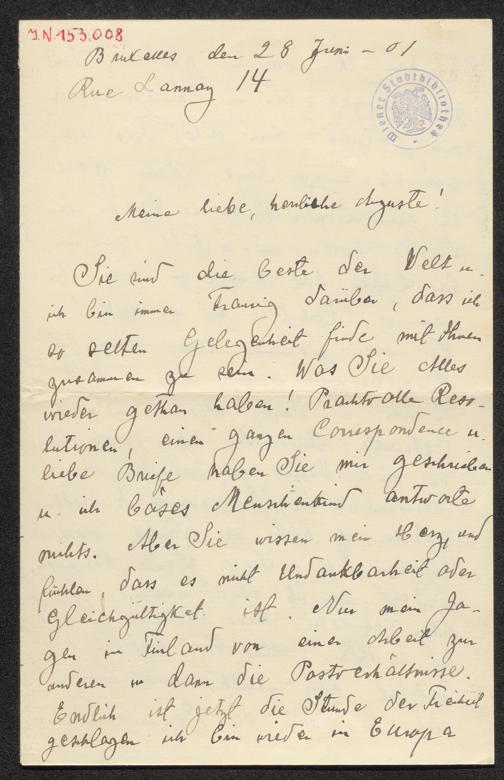 J.N. 153.008
Wiener Stadtbibliothek
Bruxelles den 28 Juni - 01
Rue Lannoy 14
Meine liebe, herrliche Auguste!
Sie sind die beste der Welt u.
ich bin immer traurig darüber, dass ich
so selten Gelegenheit finde mit Ihnen
zusammen zu sein. Was Sie Alles
wieder gethan haben! Prachtvolle Reso-
lutionen, einen ganzen Correspondence u.
liebe Briefe haben Sie mir geschrieben
u. ich böses Menschenkind antworte
nichts. Aber Sie wissen mein Herz, und
fühlen, dass es nicht Undankbarheit oder
Gleichgültigket ist. Nur mein Ja-
gen in Finland von einer Arbeit zur
anderen u dann die Postverhältnisse.
Endlich ist jetzt die Stunde der Freiheit
geschlagen ich bin wieder in Europa